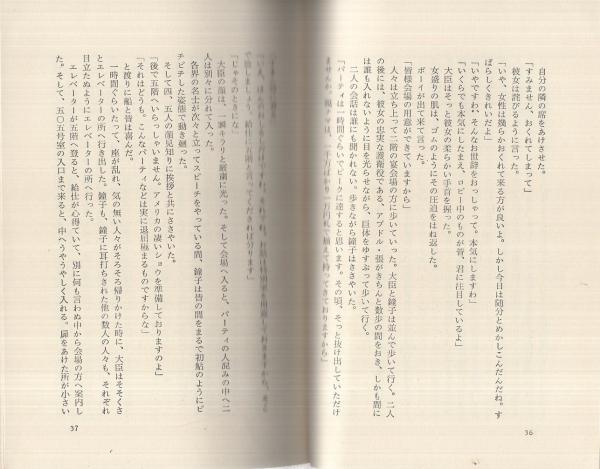 自分の隣の席をあけさせた。
「すみません、おくれてしまって」
彼女は詫びるように言った。
「いや、女性は幾らかおくれて来る方が良いよ。しかし今日は随分とめかしこんだんだね。す
ばらしくきれいだよ」
「いやですわ、そんなお世辞をおっしゃって。本気にしますわ」
「いくらでも本気にしたまえ、ロビー中のものが皆、君に注目しているよ」
大臣はそっと彼女の柔らかい手首を握った。
女盛りの肌は、はずむようにその圧迫をはね返した。
ボーイが出て来て言った。
「皆様会場の用意ができていますから」
人々は立ち上って二階の宴会の方に歩いていった。大臣と鏡子は並んで歩いて行く。二人
の後には、彼女の忠実な護衛役である、アブドル・張がきちんと数歩の間をおき、しかも間に
は誰も入れないように目を光らせながら、巨体をゆすぶって歩いて行く。
二人の会話は誰にも聞かれない。歩きながら鏡子はささやいた。
「パーティは一時間ぐらいでピークに達すると思います。その頃、そっと抜け出していただけ
ませんか。
36
「じゃそのときにな」
大臣の顔は、一瞬キラリと厳粛に光った。そして会場へ入ると、パーティの人混みの中へ二
人は別々に分れて入った。
各界の名士が次々と立ってスピーチをやっている間、鏡子は皆の間をまるで初鮎のようにピ
チピチした姿態で動き廻った。
そして四、五人の顔見知りに挨拶と共にささやいた。
「後で五階へいらっしゃいません。アメリカの凄いショウを準備しておりますのよ」
「それはどうも。こんなパーティなどは実に退屈極まるものですからな」
と渡りに船と皆は喜んだ。
一時間ぐらいたって、座が乱れ、気の無い人々がそろそろ帰りかけた時に、大臣はそそくさ
とエレベーターの所へ行き出した。鏡子も、鏡子に耳打ちされた他の数人の人々も、それぞれ
目立たぬようにエレベーターの所へ行った。
エレベーターが五階へ登ると、給仕が心得ていて、別に何も言わぬ中から会場の方へ案内し
た。そして、五〇五号室の入口まで来ると、中へうやうやしく入れる。扉をあけた所が小さい
37